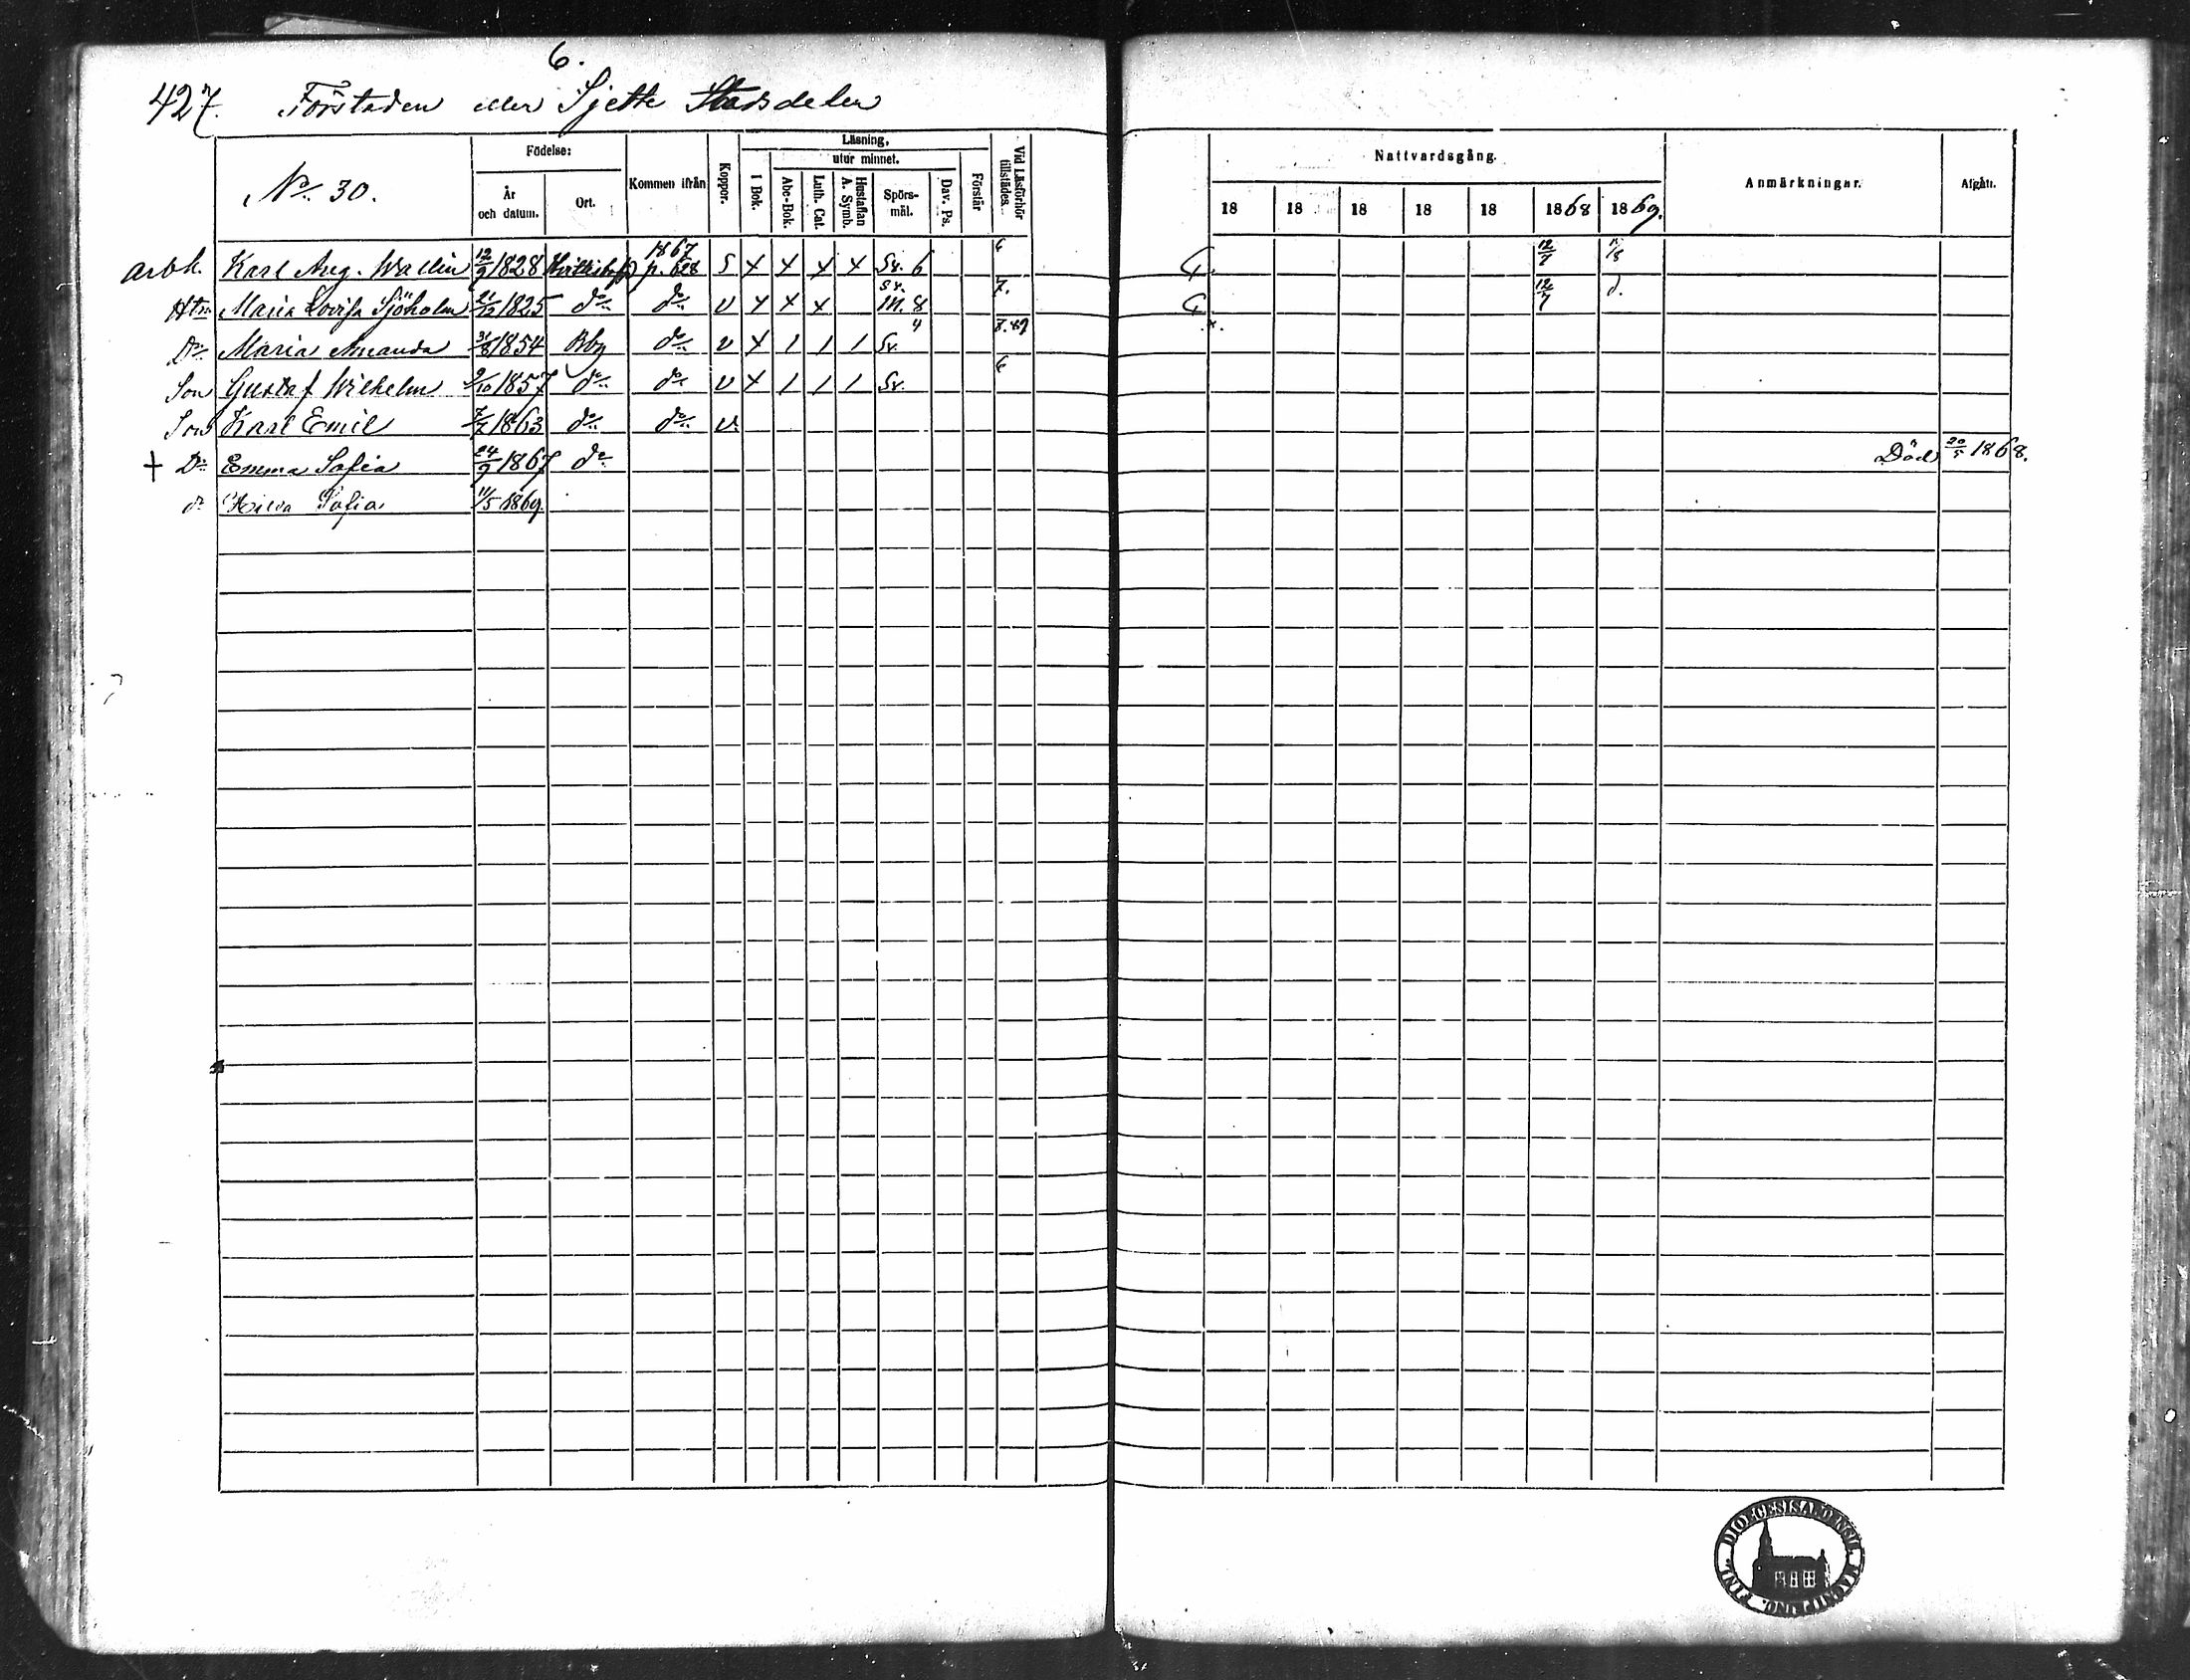 6.
427. Förstaden eller Sjette Stadsdelen
No. 30.
Födelse:
År och datum.
Ort.
Kommen ifrån
Koppor.
Läsning,
I Bok.
utur minnet.
Abc-Bok.
Luth. Cat.
Hustaflan A. Symb.
Spörsmål.
Dav. Ps.
Förstår
Vid Läsförhör tillstädes.
Nattvardsgång.
18 18 18 18 18 1868 1869.
Anmärkningar.
Afgått.
arbk. Karl Aug. Wallin 12/9 1828 1867 p. 628 S X X X X Sv. 6 6 12/7
Htru Maria Lovisa Sjöholm 21/12 1825 do do v X X X Sv. M. 8 7. 12/7 d.
Dr Maria Amanda 31/8 1854 Bby do v X 1 1 1 Sv. 4
Son Gustaf Wilhelm 9/10 1857 do do v X 1 1 1 Sv. 6
Son Karl Emil 7/7 1863 do do v.
† Dr Emma Sofia 24/9 1867 do Död 20/5 1868.
dr Hilda Sofia 11/5 1869.